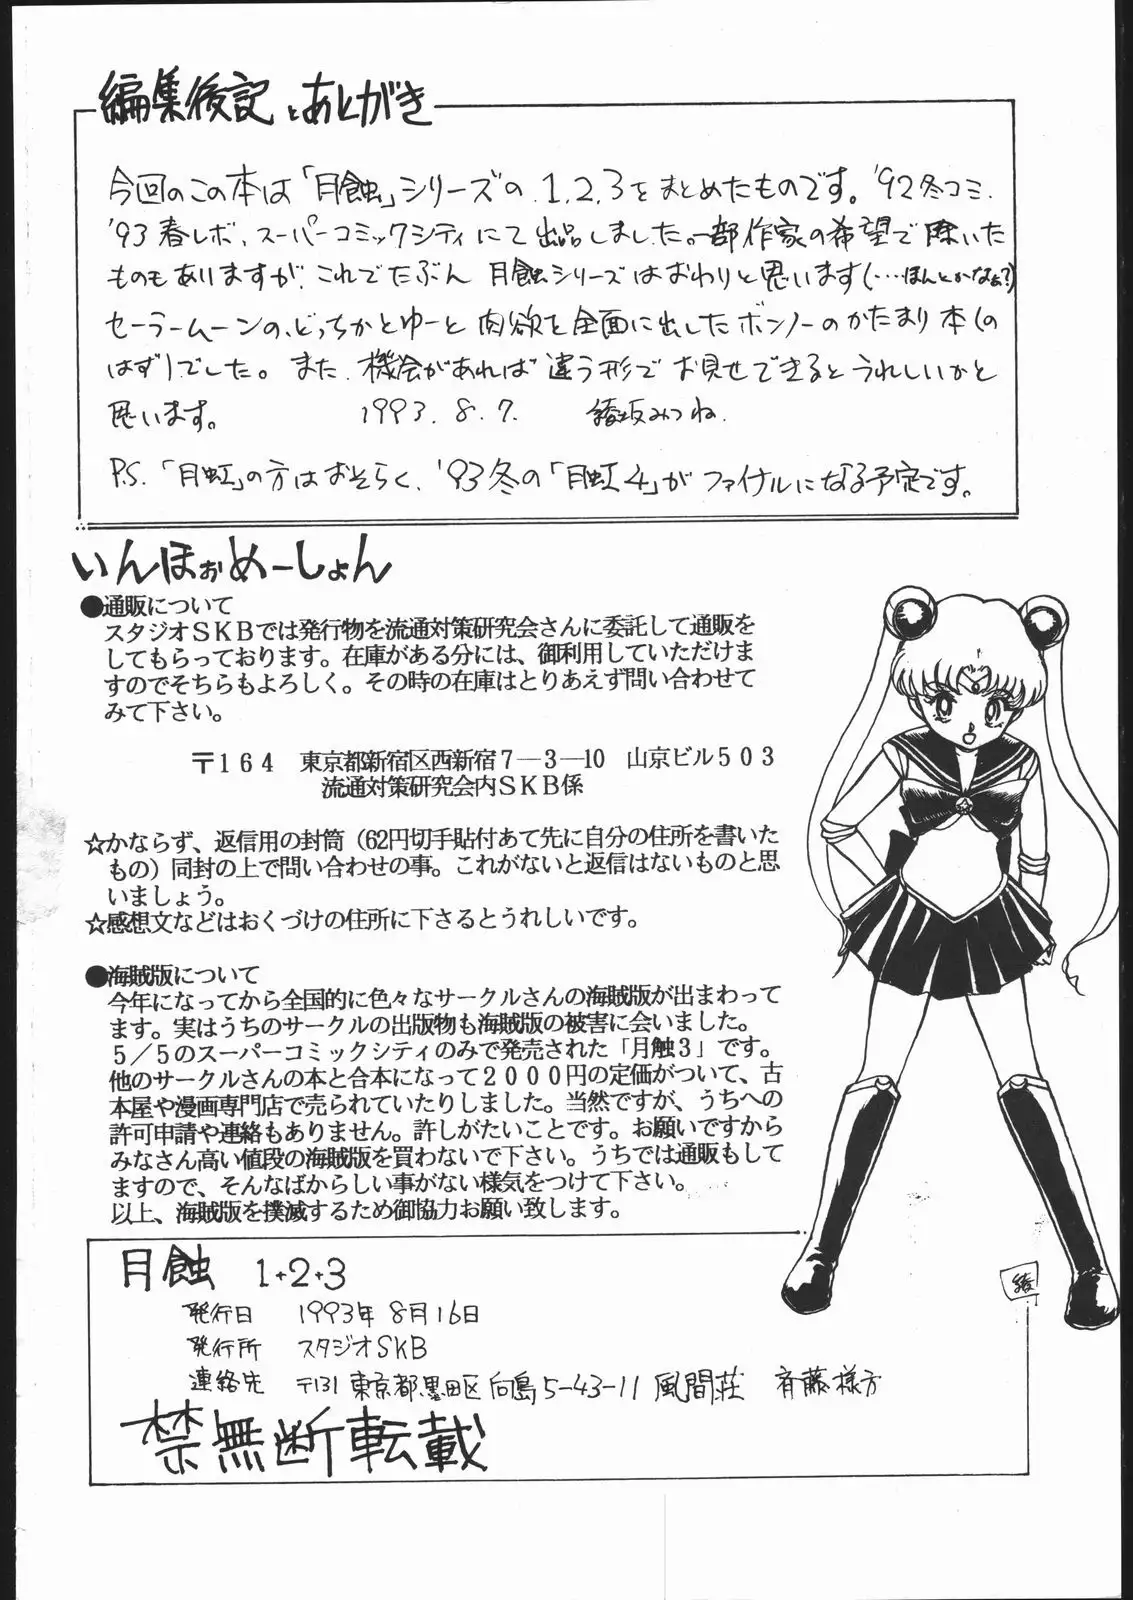 編集後記とあとがき
今回のこの本は「月蝕」シリーズの、1,2,3をまとめたものです。'92冬コミ、
'93春レボ、スーパーコミックシティにて出品しました。一部作家の希望で除いた
ものもありますが、これでたぶん月蝕シリーズはおわりと思います(…ほんとかなぁ?)
セーラームーンの、どっちかとゆーと肉欲を全面に出したボンノーのかたまり本(の
はず)でした。また、機会があれば違う形でお見せできるとうれしいかと
思います。 1993.8.7. 綾坂みつね
P.S.「月虹」の方はおそらく、'93冬の「月虹4」がファイナルになる予定です。
いんほぉめーしょん
●通販について
スタジオSKBでは発行物を流通対策研究会さんに委託して通販を
してもらっております。在庫がある分には、御利用していただけま
すのでそちらもよろしく。その時の在庫はとりあえず問い合わせて
みて下さい。
〒164 東京都新宿区西新宿7-3-10 山京ビル503
流通対策研究会内SKB係
☆かならず、返信用の封筒(62円切手貼付あて先に自分の住所を書いた
もの)同封の上で問い合わせの事。これがないと返信はないものと思
いましょう。
☆感想文などはおくづけの住所に下さるとうれしいです。
●海賊版について
今年になってから全国的に色々なサークルさんの海賊版が出まわって
ます。実はうちのサークルの出版物も海賊版の被害に会いました。
5/5のスーパーコミックシティのみで発売された「月触3」です。
他のサークルさんの本と合本になって2000円の定価がついて、古
本屋や漫画専門店で売られていたりしました。当然ですが、うちへの
許可申請や連絡もありません。許しがたいことです。お願いですから
みなさん高い値段の海賊版を買わないで下さい。うちでは通販もして
ますので、そんなばからしい事がない様気をつけて下さい。
以上、海賊版を撲滅するため御協力お願い致します。
綾
月蝕 1+2+3
発行日 1993年8月16日
発行所 スタジオSKB
連絡先 〒131 東京都墨田区向島5-43-11 風間荘 斉藤様方
禁無断転載